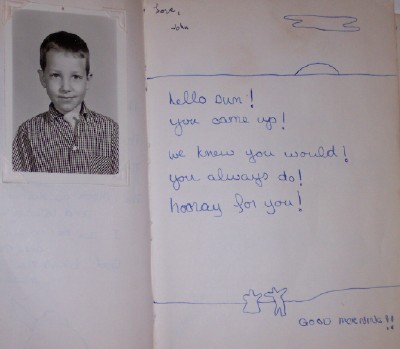 love,
John
hello sun!
you came up!
we knew you would!
you always do!
hooray for you!
GOOD MORNING!!